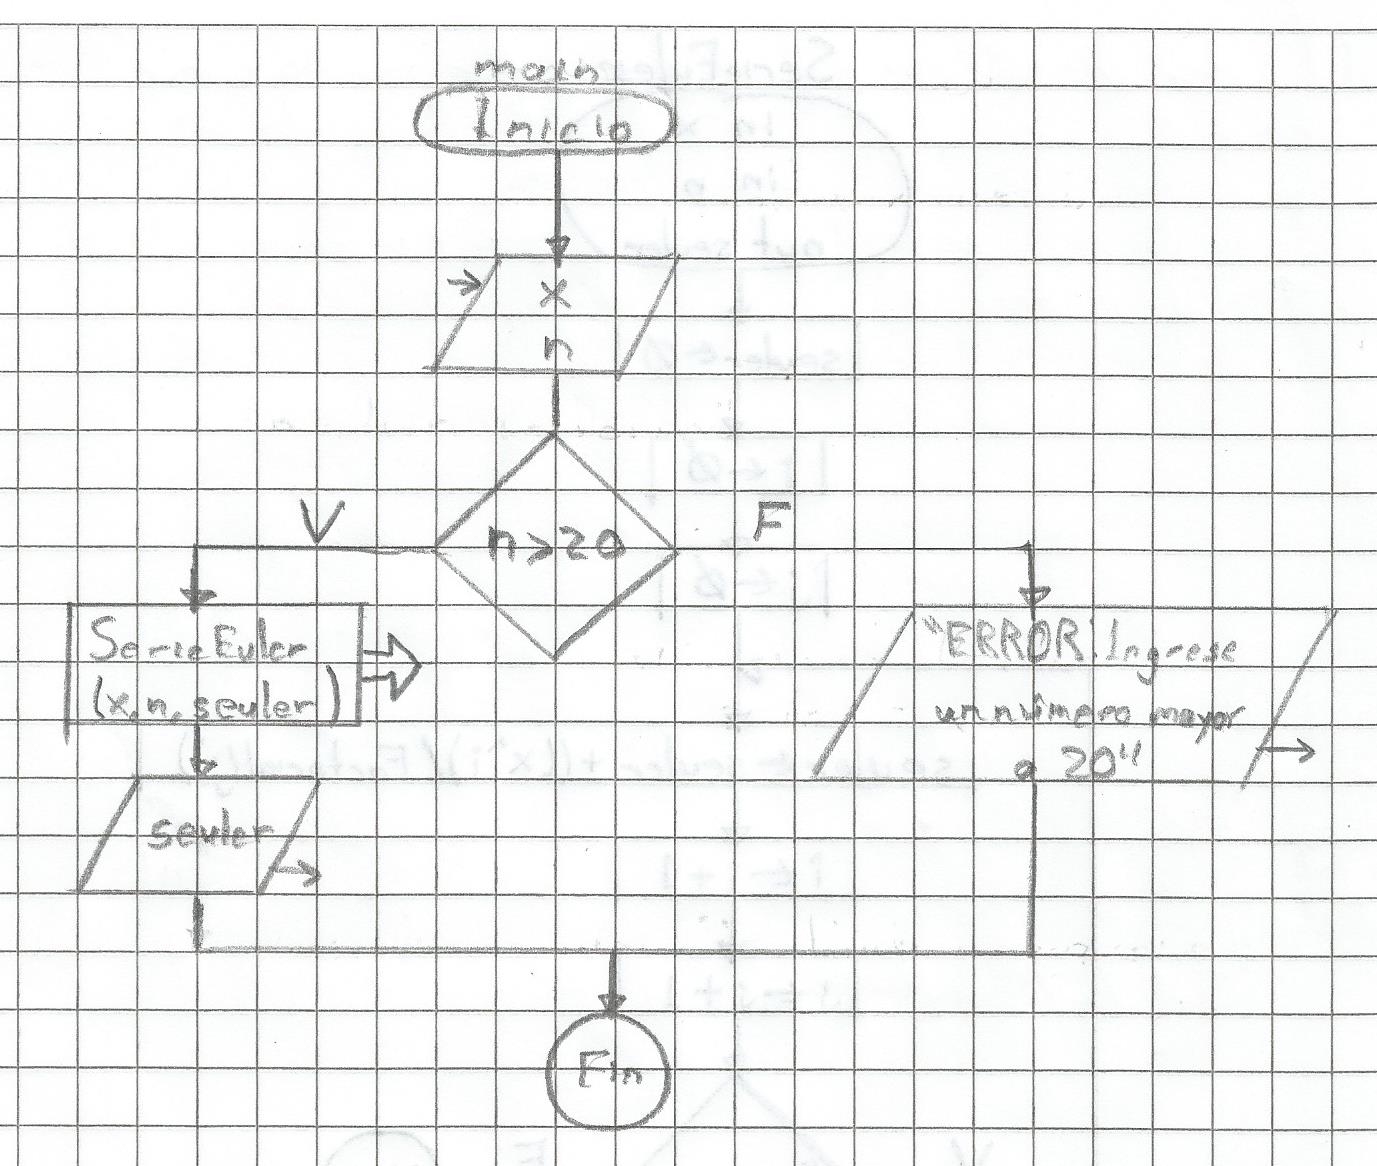 main
Inicio
x
n
n>20
V
F
SerieEuler
(x,n,seuler)
"ERROR. Ingrese
un número mayor
a 20"
seuler
Fin